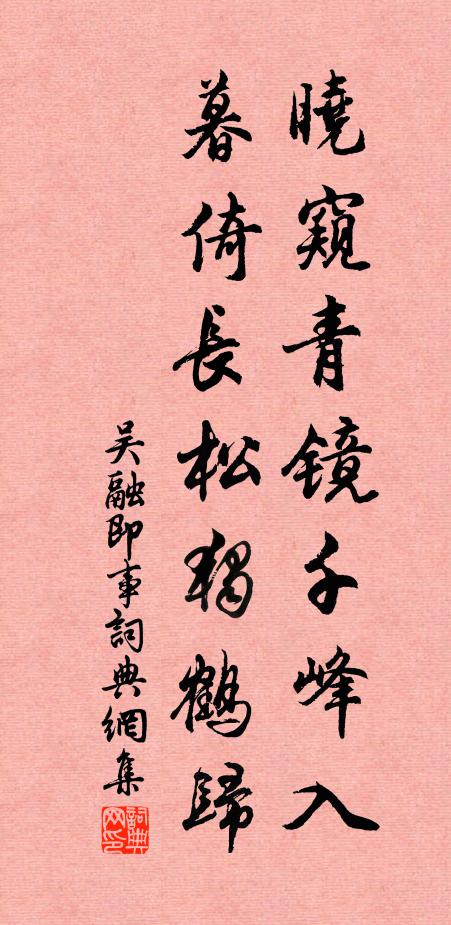 曉窺青镜千峰入
暮倚長松獨鶴歸
吴融即事詞典網集
詞典网印